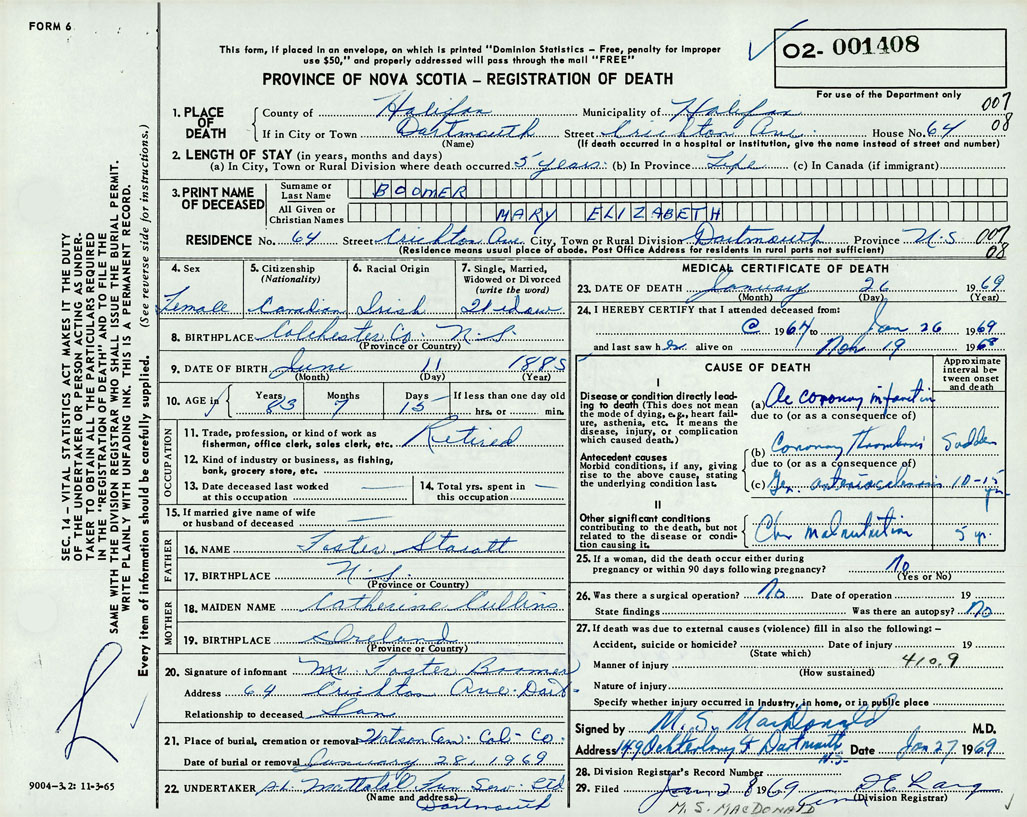 FORM 6
This form, if placed in an envelope, on which is printed "Dominion Statistics – Free, penalty for improper
use $50," and properly addressed will pass through the mail "FREE"
O2- 001408
PROVINCE OF NOVA SCOTIA – REGISTRATION OF DEATH
For use of the Department only
007
08
1. PLACE OF DEATH County of Halifax Municipality of Halifax
If in City or Town Dartmouth Street Crichton Ave. House No. 64
(Name) (If death occurred in a hospital or institution, give the name instead of street and number)
2. LENGTH OF STAY (in years, months and days)
(a) In City, Town or Rural Division where death occurred 5 years (b) In Province Life (c) In Canada (if immigrant)
3. PRINT NAME OF DECEASED Surname or Last Name BOOMER
All Given or Christian Names MARY ELIZABETH
RESIDENCE No. 64 Street Crichton Ave City, Town or Rural Division Dartmouth Province N.S
007
08
(Residence means usual place of abode. Post Office Address for residents in rural parts not sufficient)
SEC. 14 – VITAL STATISTICS ACT MAKES IT THE DUTY
OF THE UNDERTAKER OR PERSON ACTING AS UNDER-
TAKER TO OBTAIN ALL THE PARTICULARS REQUIRED
IN THE "REGISTRATION OF DEATH" AND TO FILE THE
SAME WITH THE DIVISION REGISTRAR WHO SHALL ISSUE THE BURIAL PERMIT.
WRITE PLAINLY WITH UNFADING INK. THIS IS A PERMANENT RECORD.
Every item of information should be carefully supplied. (See reverse side for instructions.)
4. Sex
Female
5. Citizenship
(Nationality)
Canadian
6. Racial Origin
Irish
7. Single, Married,
Widowed or Divorced
(write the word)
Widow
8. BIRTHPLACE Colchester Co. N.S.
(Province or Country)
9. DATE OF BIRTH June 11 1885
(Month) (Day) (Year)
10. AGE in Years 83 Months 7 Days 15 If less than one day old
hrs. or min.
OCCUPATION
11. Trade, profession, or kind of work as
fisherman, office clerk, sales clerk, etc. Retired
12. Kind of industry or business, as fishing,
bank, grocery store, etc.
13. Date deceased last worked
at this occupation
14. Total yrs. spent in
this occupation
15. If married give name of wife
or husband of deceased
FATHER
16. NAME Foster
17. BIRTHPLACE N.S.
(Province or Country)
MOTHER
18. MAIDEN NAME Catherine Cullins
19. BIRTHPLACE Ireland
(Province or Country)
20. Signature of informant Mr. Foster Boomer
Address 64 Crichton Ave. Dart-
Relationship to deceased Son
21. Place of burial, cremation or removal Watson Cem. Col- Co.
Date of burial or removal January 28, 1969
22. UNDERTAKER Ltd
(Name and address)
Dartmouth
9004-3.2: 11-3-65
MEDICAL CERTIFICATE OF DEATH
23. DATE OF DEATH January 26 1969
(Month) (Day) (Year)
24. I HEREBY CERTIFY that I attended deceased from:
@ 1964 to Jan 26 1969
and last saw her alive on Nov 19 1968
CAUSE OF DEATH
Approximate
interval be-
tween onset
and death
I
Disease or condition directly lead-
ing to death (This does not mean
the mode of dying, e.g., heart fail-
ure, asthenia, etc. It means the
disease, injury, or complication
which caused death.)
(a) Ac coronary infarction
due to (or as a consequence of)
Antecedent causes
Morbid conditions, if any, giving
rise to the above cause, stating
the underlying condition last.
(b) Coronary Thrombosis Sudden
due to (or as a consequence of)
(c) Gen. arteriosclerosis 10-15 yr.
II
Other significant conditions
contributing to the death, but not
related to the disease or condi-
tion causing it.
Chr malnutrition 5 yr.
25. If a woman, did the death occur either during
pregnancy or within 90 days following pregnancy? No
(Yes or No)
26. Was there a surgical operation? No Date of operation 19
State findings Was there an autopsy? No
27. If death was due to external causes (violence) fill in also the following: –
Accident, suicide or homicide? Date of injury 19
(State which)
Manner of injury 410.9
(How sustained)
Nature of injury
Specify whether injury occurred in industry, in home, or in public place
Signed by M. S. MacDonald M.D.
Address 149 Ochterloney St Dartmouth N.S. Date Jan 27 1969
28. Division Registrar's Record Number
29. Filed Jan 28 1969
(Division Registrar)
M. S. MACDONALD